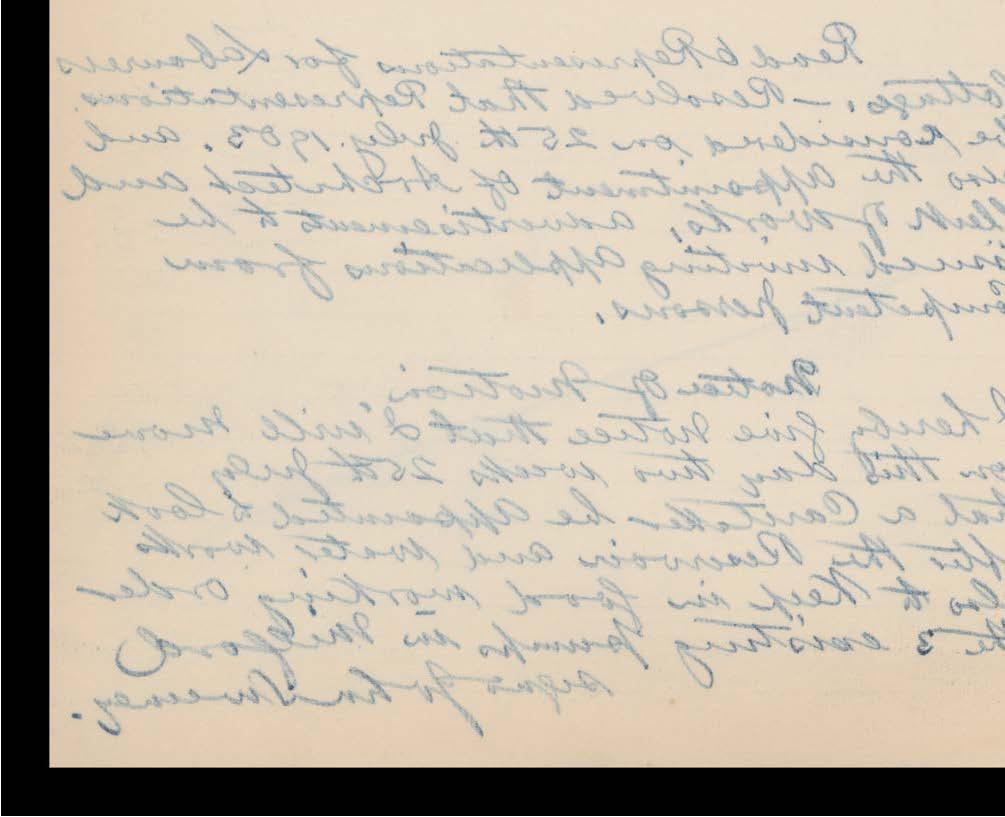 Read 6 Representations for Labourers
ottage. – Resolved that Representations
be considered on 25th July. 1903. and
the appointment of Architect and
lerk of Works, advertisements to be
issued inviting applications from
ompetent persons.
Notice of Motion
hereby give notice that I will move
on this day two weeks 25th July
hat a Caretaker be appointed to look
after the Reservoir and water works
also to keep in good working order
the 3 existing pumps in Milford
signed John Sweeney.